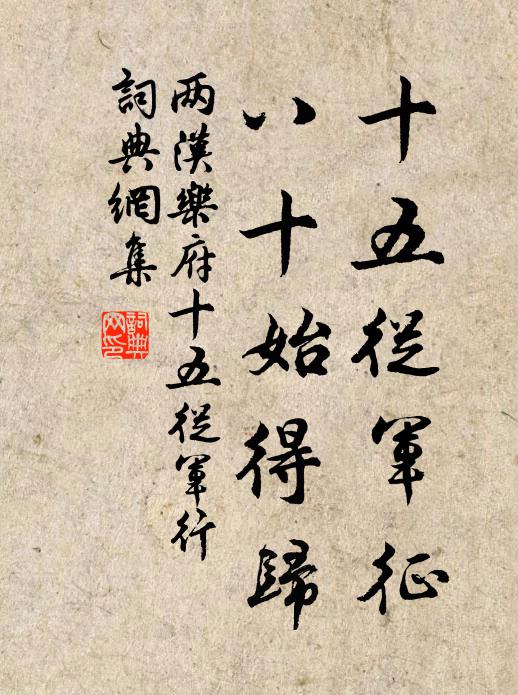 十五從軍征
八十始得歸
两漢樂府十五從軍行
詞典網集
詞典网印